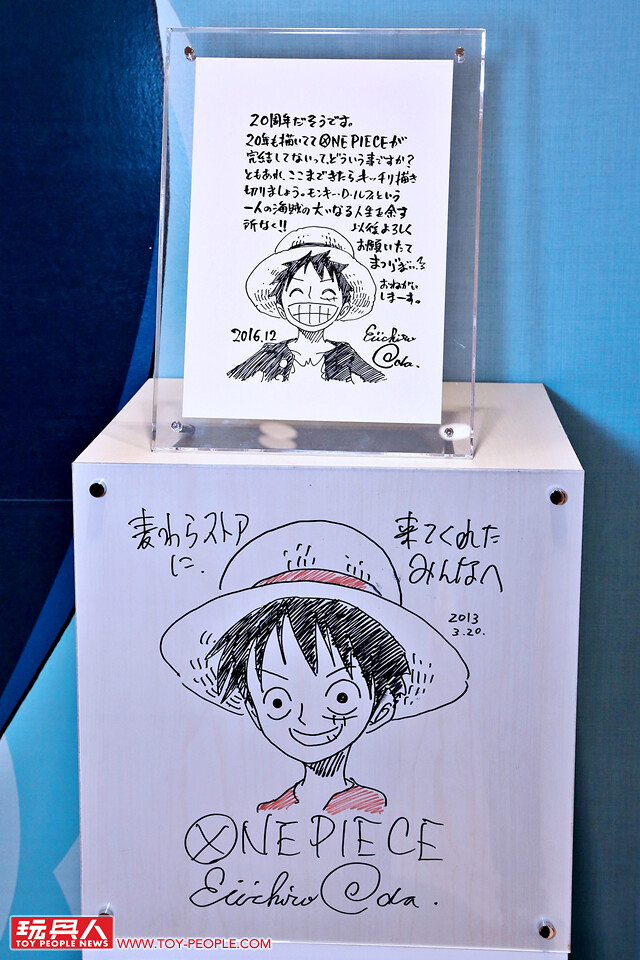 20周年だそうです。
20年も描いてて ONE PIECEが
完結してないって、どういう事ですか?
ともあれ、ここまできたらキッチリ描き
切りましょう。モンキー・D・ルフィという
一人の海賊の大いなる人生を余す
所なく!! 以後よろしく
お願いたて
まつりまい
おねがい
しまーす。
2016.12
Eiichiro
Oda.
麦わらストア
に.
来てくれた
みんなへ
2013
3.20.
ONE PIECE
Eiichiro Oda.
玩具人
TOY PEOPLE NEWS
WWW.TOY-PEOPLE.COM